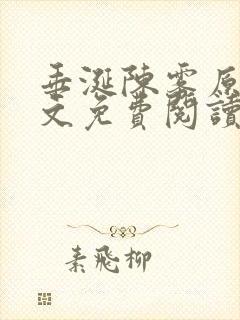 垂涎陳雾原
文免費閱讀
素飛柳